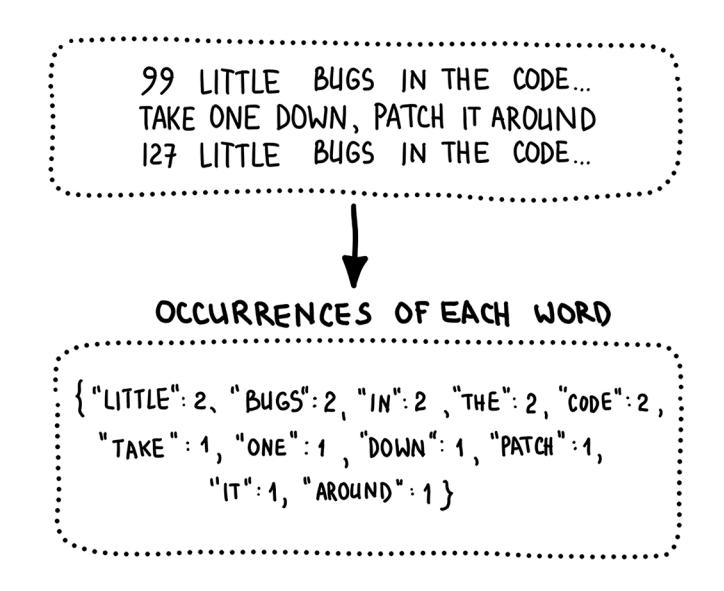 99 LITTLE BUGS IN THE CODE...
TAKE ONE DOWN, PATCH IT AROUND
127 LITTLE BUGS IN THE CODE...
OCCURRENCES OF EACH WORD
{"LITTLE": 2, "BUGS": 2, "IN": 2, "THE": 2, "CODE": 2,
"TAKE": 1, "ONE": 1, "DOWN": 1, "PATCH": 1,
"IT": 1, "AROUND": 1}